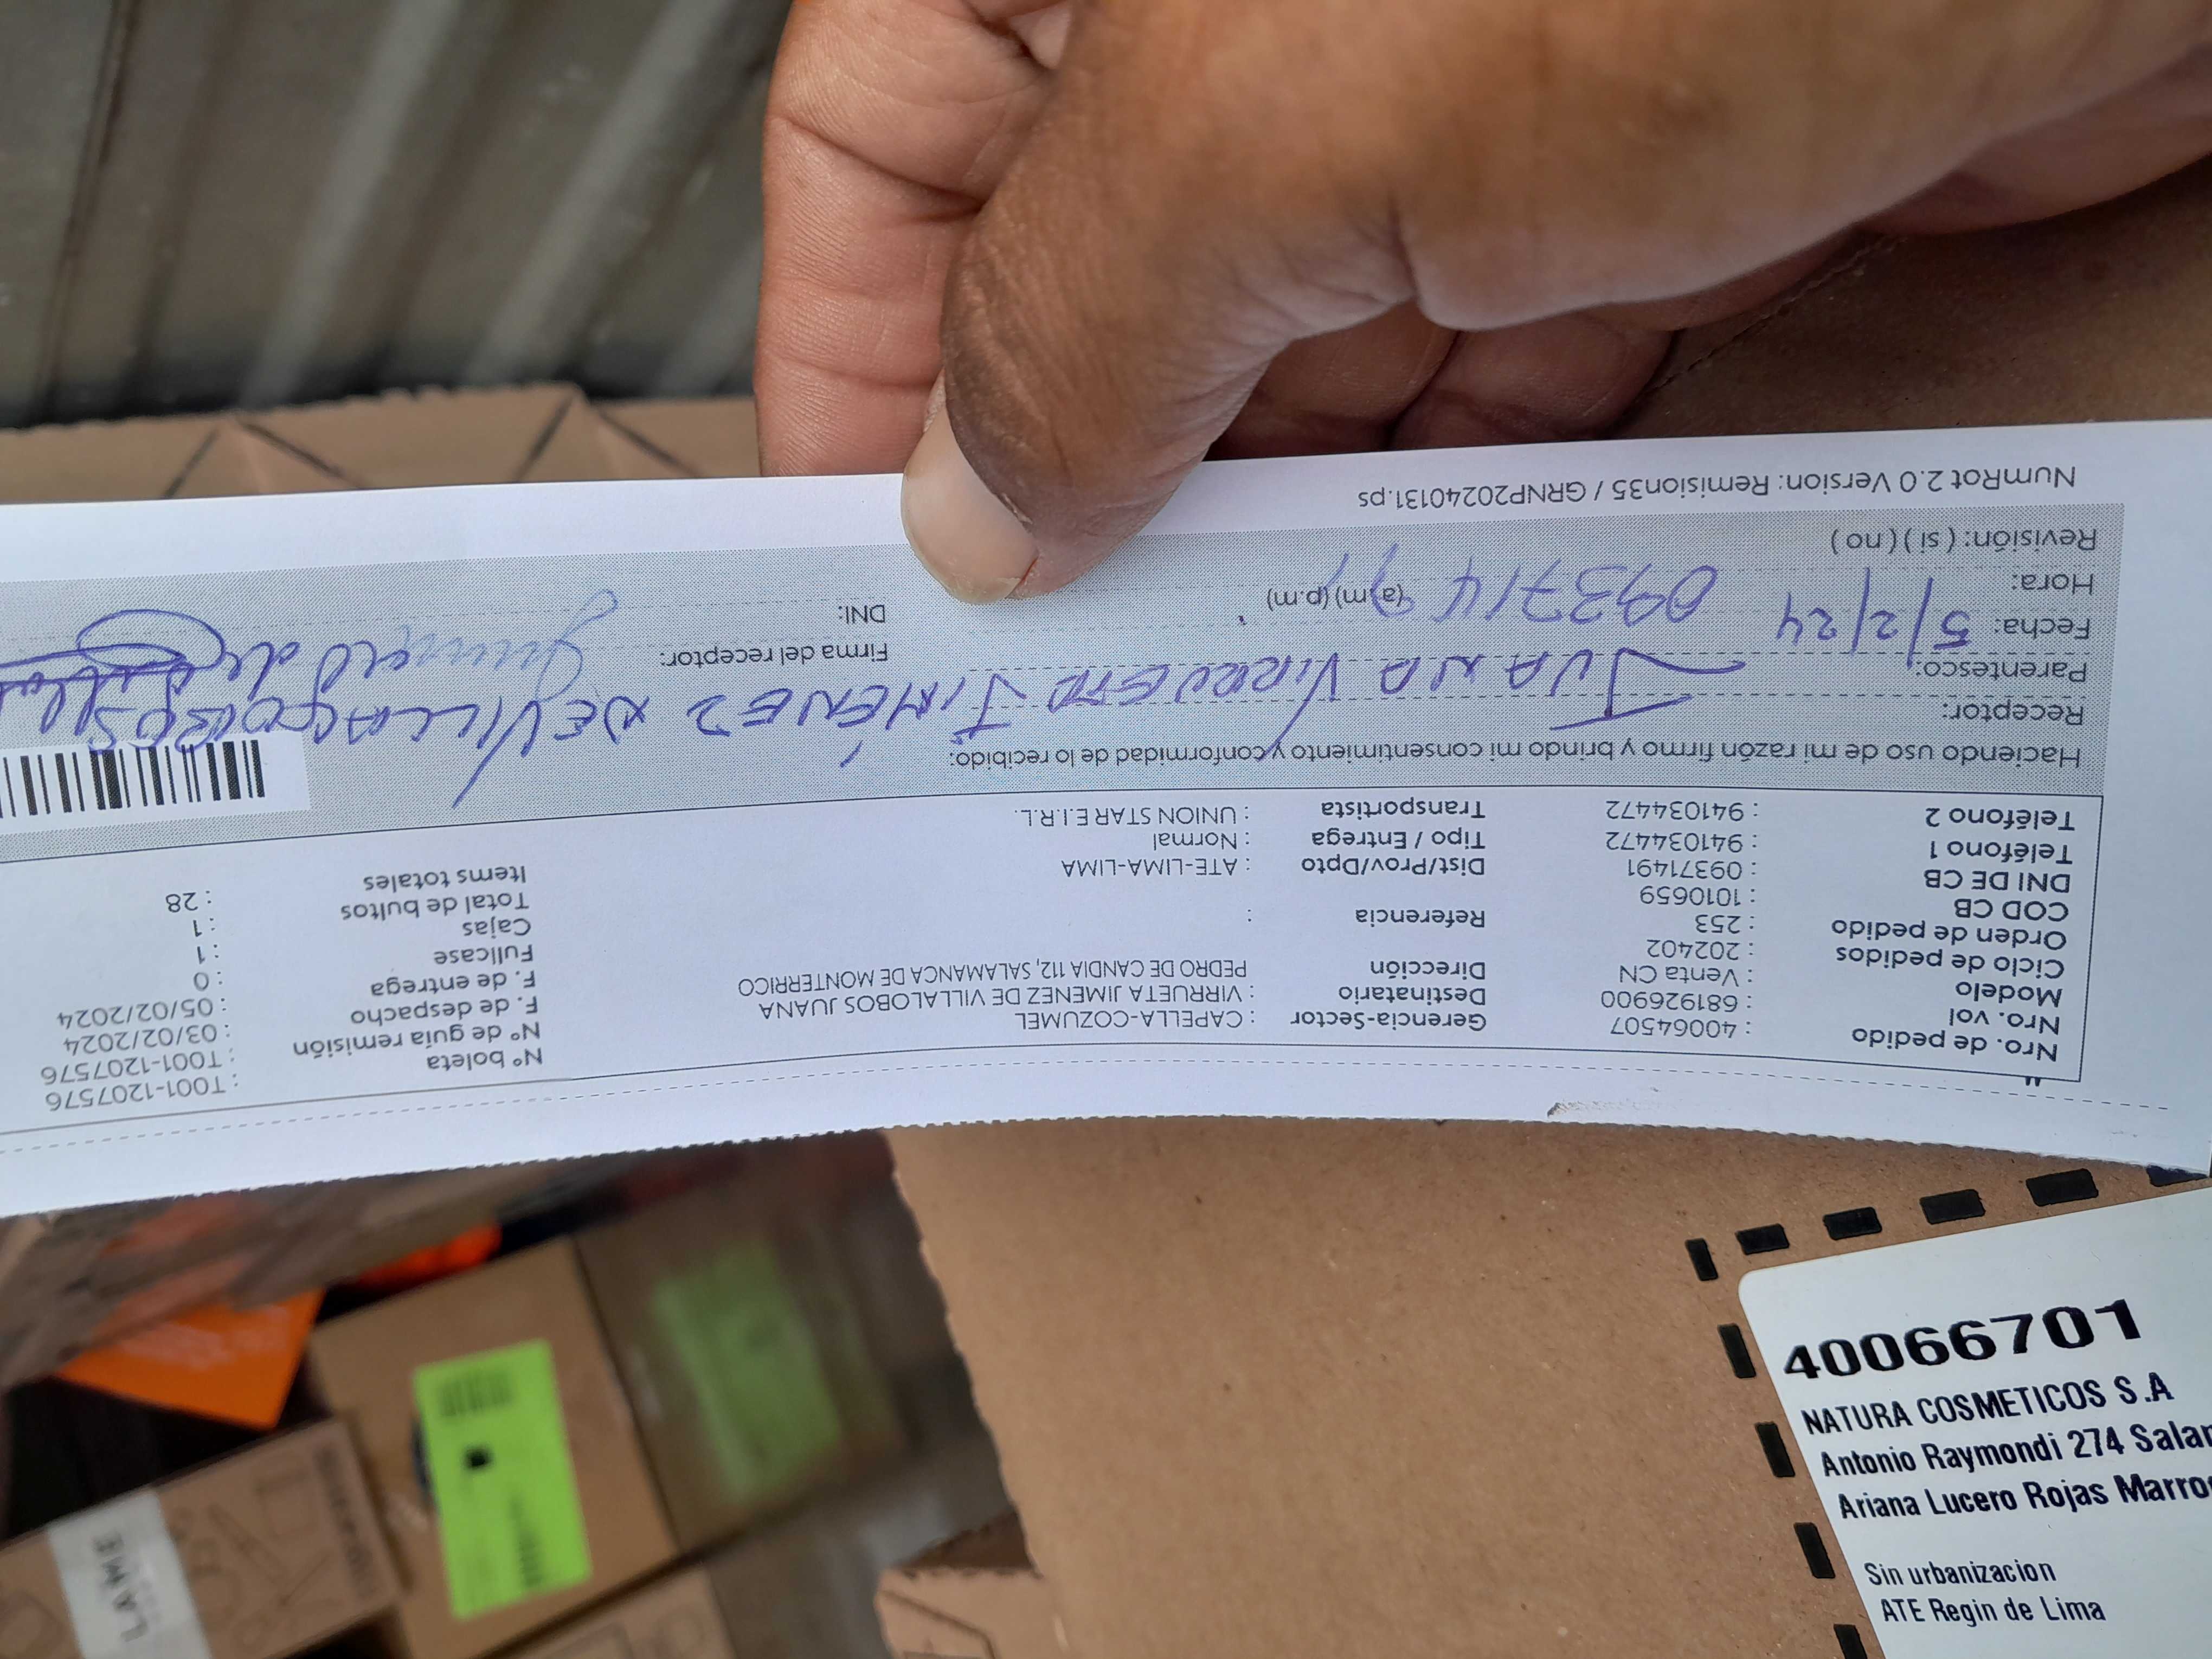 Nro. de pedido : 40064507
Nro. vol : 681926900
Modelo : Venta CN
Ciclo de pedidos : 202402
Orden de pedido : 253
COD CB : 1010659
DNI DE CB : 09371491
Teléfono 1 : 941034472
Teléfono 2 : 941034472
Gerencia-Sector : CAPELLA-COZUMEL
Destinatario : VIRRUETA JIMENEZ DE VILLALOBOS JUANA
Dirección PEDRO DE CANDIA 112, SALAMANCA DE MONTERRICO
Referencia :
Dist/Prov/Dpto : ATE-LIMA-LIMA
Tipo / Entrega : Normal
Transportista : UNION STAR E.I.R.L.
N° boleta : T001-1207576
N° de guía remisión : T001-1207576
F. de despacho : 03/02/2024
F. de entrega : 05/02/2024
Fullcase : 0
Cajas : 1
Total de bultos : 1
Items totales : 28
Haciendo uso de mi razón firmo y brindo mi consentimiento y conformidad de lo recibido:
Receptor: JUANA VIRRUETA JIMÉNEZ DE VILLALOBOS
Parentesco:
Fecha: 5/2/24
Hora: (a.m) (p.m)
Revisión: ( si ) ( no )
Firma del receptor:
DNI:
NumRot 2.0 Version: Remision35 / GRNP20240131.ps
40066701
NATURA COSMETICOS S.A
Antonio Raymondi 274
Ariana Lucero Rojas
Sin urbanizacion
ATE Regin de Lima
LAME